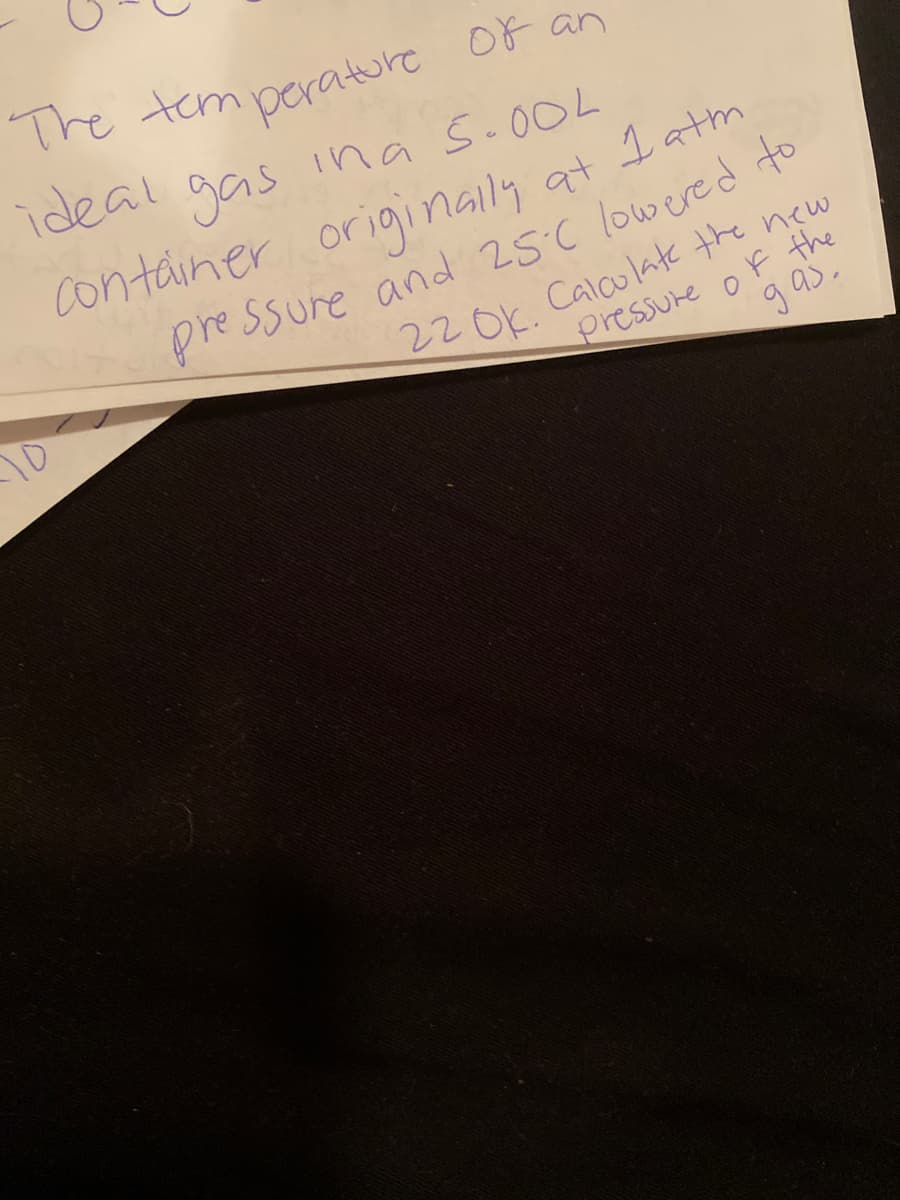 The temperature of an
ideal gas in a 5.00L
container originally at 1 atm
pressure and 25°C lowered to
220K. Calculate the new
pressure of the
gas.
10